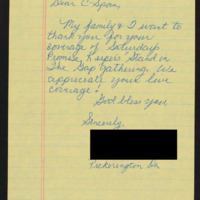 Dear C-Span,
My family & I want to
thank you for your
coverage of Saturday
Promise Keepers Stand in
The Gap Gathering. We
appreciate your live
coverage!
God bless you
Sincerely,
Pickerington Oh